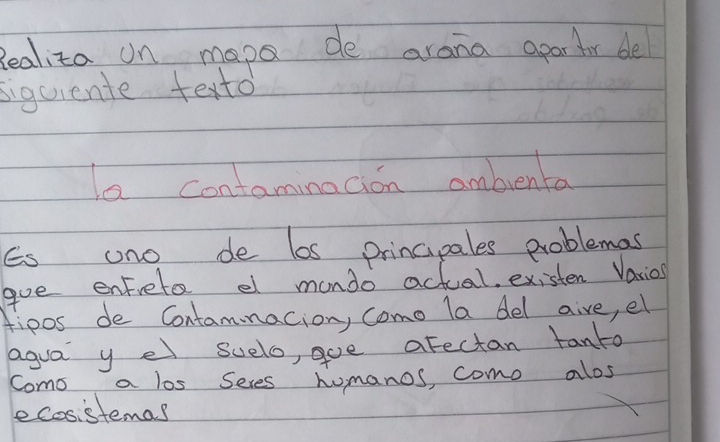 Realiza un mapa de araña apartir del
siguiente texto
la contaminación ambienta
Es uno de los principales problemas
que enfreta el mundo actual. existen Varios
tipos de Contaminacion, Como la del aire, el
agua y el suelo, que afectan tanto
Como a los seres humanos, como alos
ecosistemas